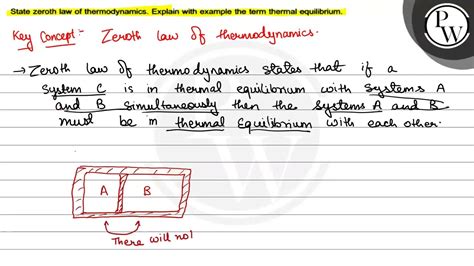 State zeroth law of thermodynamics. Explain with example the term thermal equilibrium.
Key Concept:- Zeroth law of thermodynamics.
→ Zeroth law of thermodynamics states that if a
system C is in thermal equilibrium with systems A
and B simultaneously then the systems A and B
must be in thermal equilibrium with each other.
A B
There will not
PW